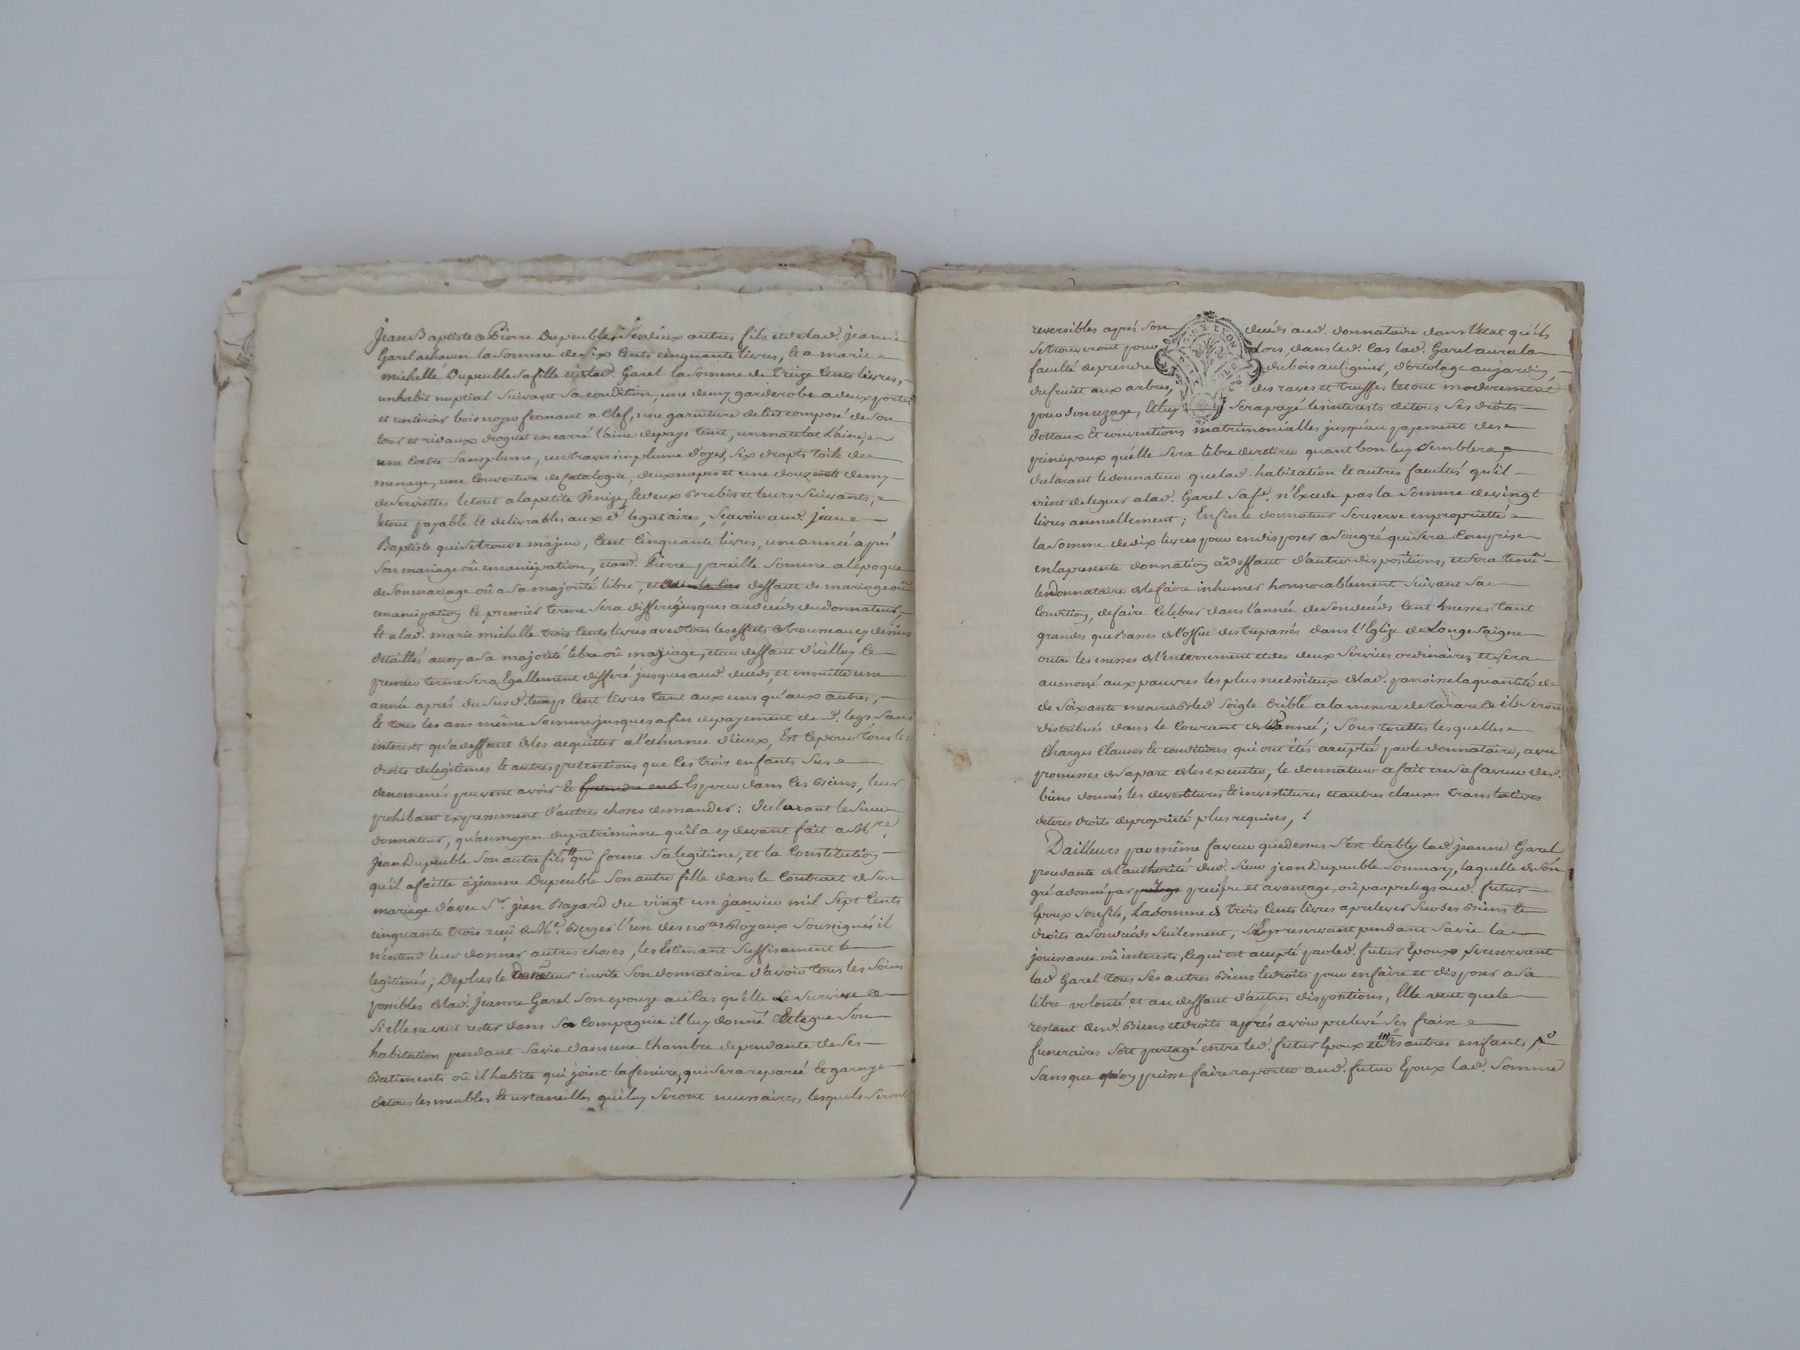 Jean Baptiste & Pierre Dupeuble, ses deux autres fils et de lad. jeanne
Garel a chacun la somme de six cents cinquante livres, et a marie
michelle Dupeuble sa fille et de lad. Garel la somme de treize cents livres,
un habit nuptial suivant sa condition, une demy garderobe a deux portes
et un tiroir bois noyer fermant a clef, une garniture de lit composé de son
tour et ridaux droguet en carré laine de pays teint, un matelat laine,
une coetre sans plume, un traversin plume d'oyes, six draps toile de
menage, une couverture de Catalogne, deux napes et une douzaine & demy
de serviettes le tout a la petite Venize, et deux brebis et leurs suivants,
le tout payable et delivrables aux d. legataires, sçavoir aud. jean
Baptiste qui se trouve majeur, cent cinquante livres, une année après
son mariage oû emancipation, et aud. Pierre pareille somme a l'epoque
de son mariage oû a sa majorité libre, et deffaut de mariage oû
emancipation le premier terme sera differé jusques au décés du donnateur,
et a lad. marie michelle trois cents livres avec tous les effets & trousseau cy dessus
detaillés aussy a sa majorité libre oû mariage, et au deffaut d'icelluy le
premier terme sera egallement differé jusques aud. décés, et ensuitte une
année après du susd. temps cent livres tant aux uns qu'aux autres,
et tous les ans même somme jusques a fin de payement desd. legs sans
interest qu'a deffaut de les acquitter a l'échéance d'iceux, Est ce pour tous les
droits de legitimes et autres pretentions que les trois enfants sus
denommés peuvent avoir et esperer dans ses biens, leur
prohibant expressement d'autres choses demander: declarant le sieur
donnateur, qu'au moyen du patrimoine qu'il a cy devant fait a Mre.
jean Dupeuble son autre fils qui forme sa legitime, et la constitution
qu'il a faitte a jeanne Dupeuble son autre fille dans le contract de son
mariage d'avec Sr. jean Bajard du vingt un janvier mil sept cents
cinquante trois reçû Me. Berger l'un des nores. Royaux soussignés il
n'entend leur donner autres choses, les estimant suffisament
legitimés; Deplus le donnateur invite son donnataire d'avoir tous les soins
possibles de lad. jeanne Garel son epouze au cas qu'elle le survive &
si elle ne veut rester dans sa compagnie il luy donne et legue son
habitation pendant sa vie dans une chambre dependante de ses
Batiments où il habite qui joint la feniere, qui sera reparée et garnye
de tous les meubles et ustancilles qui luy seront necessaires, lesquels seront
reversibles après son décés aud. donnataire dans l'état qu'ils
se trouveront pour lors, dans led. cas lad. Garel aura la
faculté de prendre du bois au lignier, d'ortolage au jardin,
du fruit aux arbres, des raves et truffes le tout moderement
pour son uzage, et luy sera payé les interests de tous ses droits
dottaux et conventions matrimonialles jusqu'au payement des
principaux qu'elle sera libre de retirer quant bon luy semblera
declarant le donnateur que lad. habitation et autres facultés qu'il
vient de leguer a lad. Garel sa fe. n'Excede pas la somme de vingt
livres annuellement; Enfin le donnateur se reserve en proprietté
la somme de dix livres pour en disposer a son gré qui sera comprise
en la presente donnation a deffaut d'autres dispositions, et sera tenû
le donnataire de le faire inhumer honnorablement suivant sa
condition, de faire celebrer dans l'année de son décés cent messes tant
grandes que Basses de l'office des trepassés dans l'Eglize de Longesaigne
outre les messes de l'enterrement et des deux services ordinaires, et sera
aumoné aux pauvres les plus necessiteux de lad. parroisse la quantité de
de soixante mesures bled soigle criblé a la mesure de Tarare & ils seront
distribués dans le courant de l'année; sous touttes lesquelles
charges clauses et conditions qui ont étés acceptés par le donnataire, avec
promesses de sa part de les executer, le donnateur a fait en sa faveur desd.
biens donnés les devestitures et investitures et autres clauses translatives
de tous droits de proprieté plus requises,
Dailleurs par même faveur que dessus s'est etably lad. jeanne Garel
procedante de l'authorité dud. sieur jean Dupeuble son mary, laquelle de son
gré a donné par preciput et avantage, oû par prelegs aud. futur
Epoux son fils, la somme de trois cents livres a prelever sur ses biens et
droits a son décés seulement, s'en reservant pendant sa vie la
jouissance oû interests, ce qui est accepté par led. futur Epoux se reservant
lad. Garel tous ses autres biens et droits pour en faire et disposer a sa
libre volonté et au deffaut d'autres dispositions, Elle veut que le
restant desd. biens et droits après avoir prelevé ses fraix
funeraires soit partagé entre led. futur Epoux et ses autres enfants
sans que puisse faire raporter aud. futur Epoux lad. somme